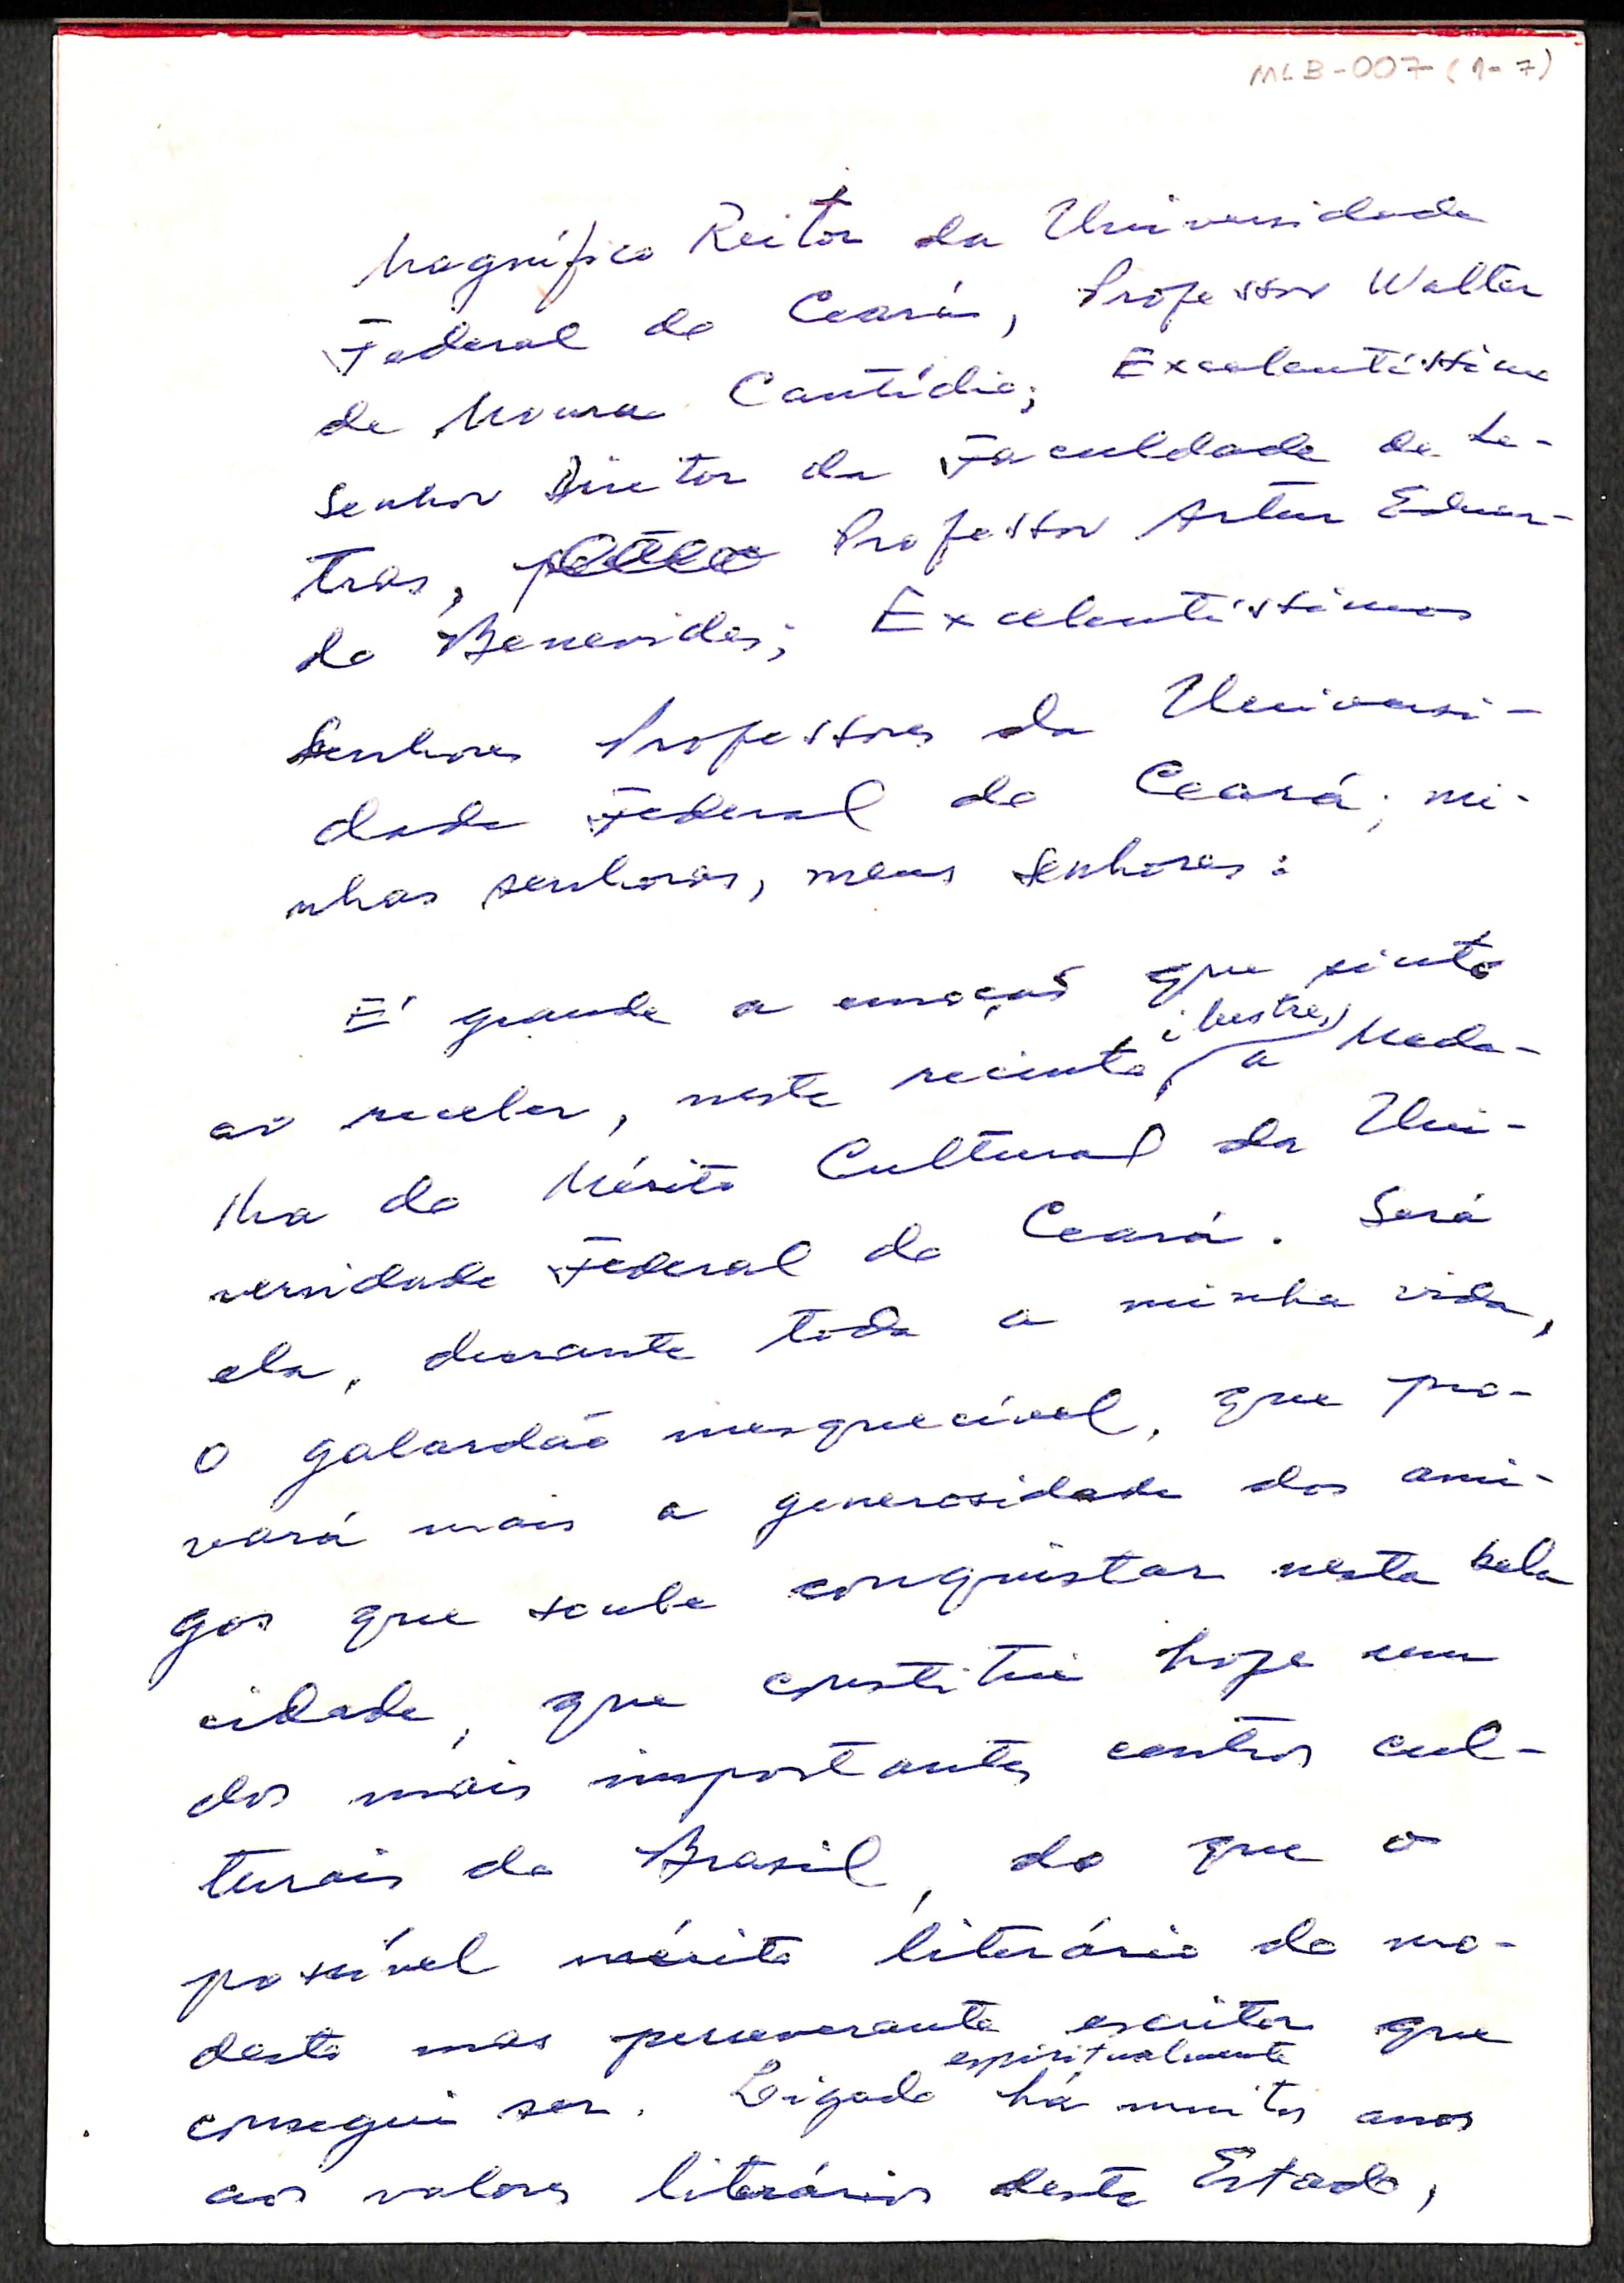 MLB-007 (1-7)
Magnífico Reitor da Universidade
Federal do Ceará, Professor Walter
de Moura Cantídio; Excelentíssimo
Senhor Diretor da Faculdade de Le-
tras, Professor Artur Eduar-
do Benevides; Excelentíssimos
Senhores Professores da Universi-
dade Federal do Ceará; mi-
nhas senhoras, meus senhores:
É grande a emoção que sinto
ao receber, neste recinto ilustre, a Meda-
lha do Mérito Cultural da Uni-
versidade Federal do Ceará. Será
ela, durante toda a minha vida,
o galardão inesquecível, que pro-
vará mais a generosidade dos ami-
gos que soube conquistar nesta bela
cidade, que constitui hoje um
dos mais importantes centros cul-
turais do Brasil, do que o
possível mérito literário do mo-
desto mas perseverante escritor que
consegui ser. Ligado espiritualmente há muitos anos
aos valores literários deste Estado,